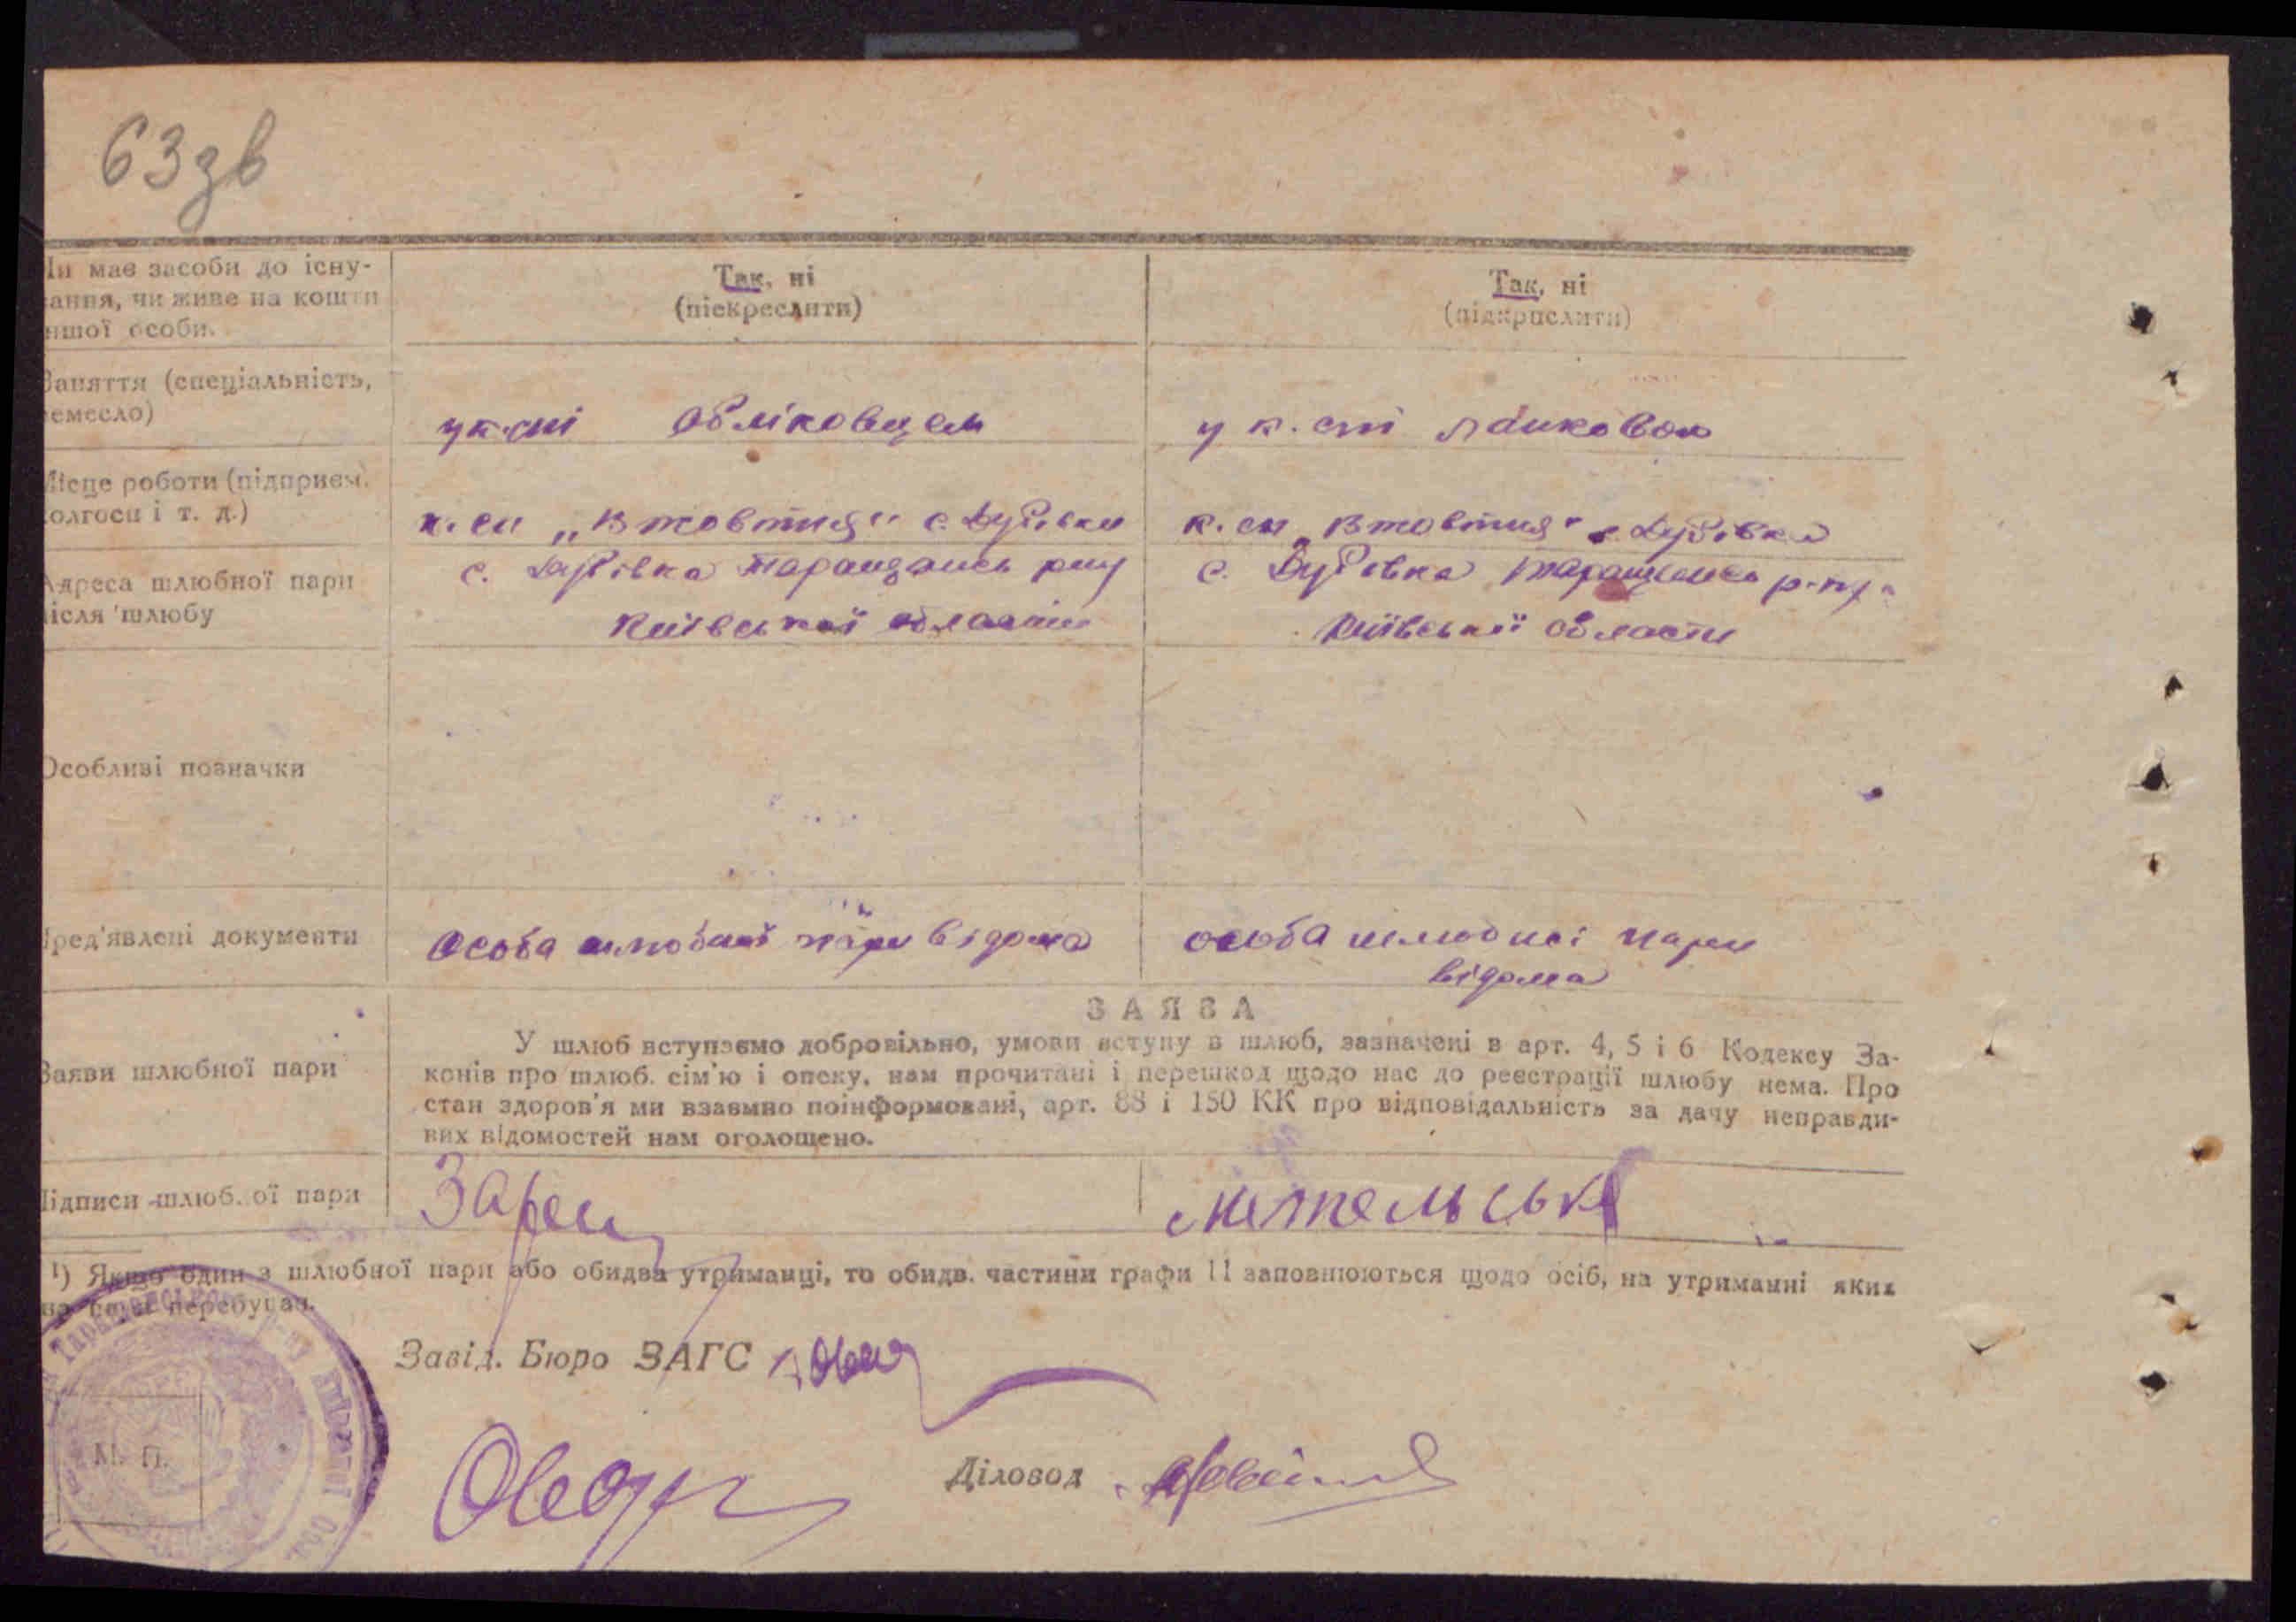 63 зв
Чи має засоби до існу-
вання, чи живе на кошти
іншої особи.
Так, ні
(піекреслити)
Так, ні
(підкрислити)
Заняття (спеціальність,
ремесло)
у к.спі обліковцем
у к. спі ланковою
Місце роботи (підприєм.
колгосп і т. д.)
к. сп „Жовтня" с Дубівки
к. сп „Жовтня" с Дубівки
Адреса шлюбної пари
після шлюбу
с. Дубівка Таращанськ рну
Київської області
с. Дубівка Таращансь р-ну
Київської области
Особливі позначки
Пред'явлені документи
Особа шлюбної пари відома
особа шлюбної пари
відома
ЗАЯВА
Заяви шлюбної пари
У шлюб вступаємо добровільно, умови вступу в шлюб, зазначені в арт. 4, 5 і 6 Кодексу За-
конів про шлюб. сім'ю і опеку, нам прочитані і перешкод щодо нас до реєстрації шлюбу нема. Про
стан здоров'я ми взаємно поінформовані, арт. 88 і 150 КК про відповідальність за дачу неправди-
вих відомостей нам оголошено.
Підписи шлюб. ої пари
Зарец
Метельська
¹) Якщо один з шлюбної пари або обидва утриманці, то обидв. частини графи 11 заповнюються щодо осіб, на утриманні яких
перебував.
Завід. Бюро ЗАГС
М. П.
Діловод